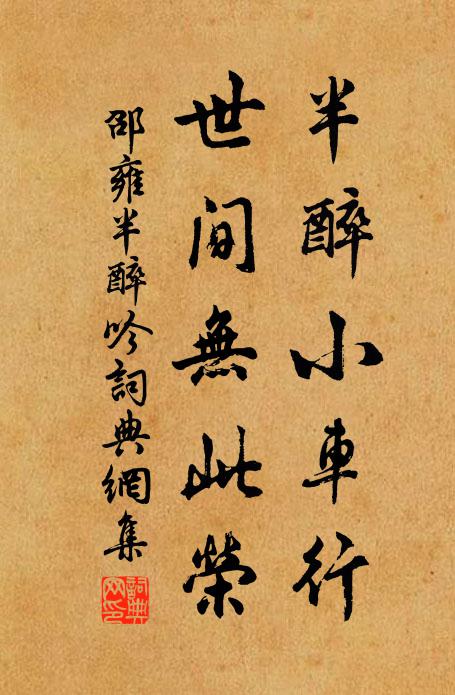 半醉小車行
世間無此榮
邵雍半醉吟詞典網集
詞典網印